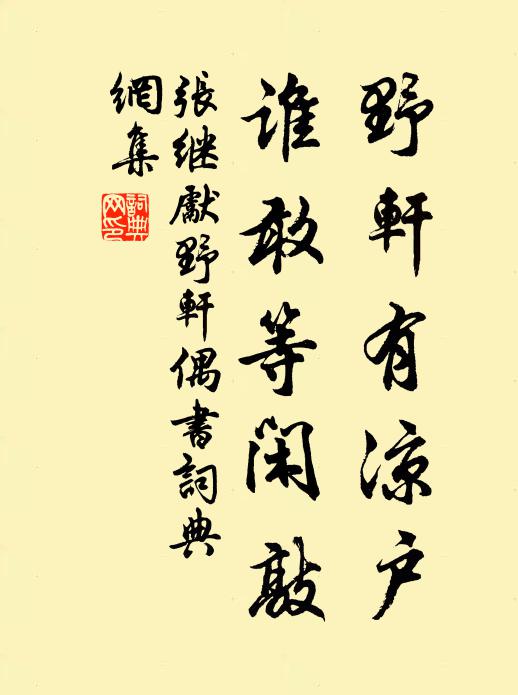 野軒有涼户
誰敢等閑敲
張继獻野軒偶書詞典
網集
詞典
网印